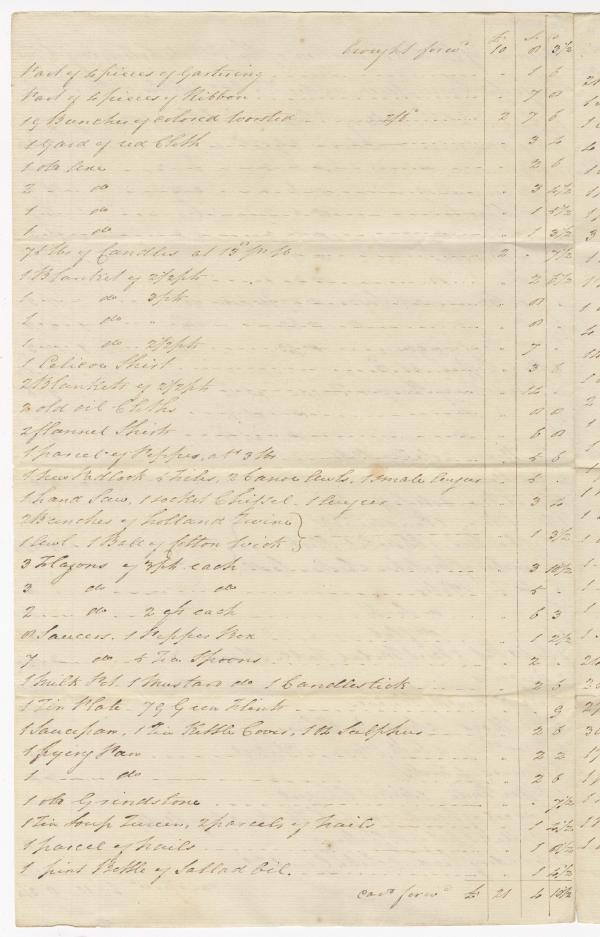 brought forwd £10 8 3½
Part of 4 pieces of Gartering " 1 6
Part of 4 pieces of Ribbon " 7 8
19 Bunches of colored worsted 2/6 2 7 6
1 yard of red Cloth " 3 4
1 do " 2 6
2 do " 3 4½
1 do " 1 5½
1 do " 1 3½
lb of Candles at 13d pr lb 2 " 7½
1 Blanket of 2½ pts " 2 6½
1 do 3 pts " 8 "
1 do " " 8 "
1 do 2½ pts " 7 "
1 Calicoe Shirt " 3 6
2 Blankets of 2½ pts " 14 "
2 old oil Cloths " 8 8
2 flannel Shirts " 6 8
1 parcel of Pepper, abt 3 lbs " 5 6
1 new Padlock 5 files, 2 Canoe Awls, 1 small auger " 5 "
1 hand Saw, 1 socket Chissel, 1 Augeer " 3 4
2 Bunches of holland Twine }
1 Awl 1 Ball of Cotton Wick } " 1 3½
3 Flagons of 3 pts each " 3 10½
3 do do " 5 "
2 do 2 qts each " 6 3
8 Saucers, 1 Pepper Box " 1 2½
7 do 5 Tin Spoons " 2 "
1 Milk Pot, 1 Mustard do 1 Candlestick " 2 6
1 Tin Plate 79 Gun Flints " " 9
1 Saucepan, 1 Tin Kettle Cover, 1 lb Sulphur " 2 6
1 frying Pan " 2 2
1 do " 2 6
1 old Grindstone " " 7½
1 Tin Soup Tureen, 2 parcels of Nails " 1 4½
1 parcel of nails " 1 8½
1 pint Bottle of Sallad Oil. " 1 4½
card forwd £ 21 4 10½